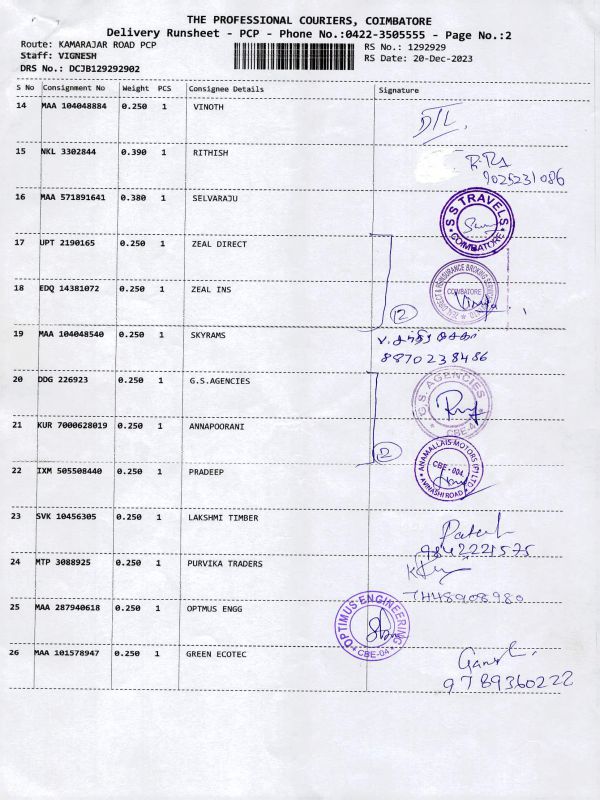 THE PROFESSIONAL COURIERS, COIMBATORE
Delivery Runsheet - PCP - Phone No.:0422-3505555 - Page No.:2
Route: KAMARAJAR ROAD PCP
RS No.: 1292929
Staff: VIGNESH
RS Date: 20-Dec-2023
DRS No.: DCJB129292902
S No Consignment No Weight PCS Consignee Details Signature
14 MAA 104048884 0.250 1 VINOTH
15 NKL 3302844 0.390 1 RITHISH
9025231086
16 MAA 571891641 0.380 1 SELVARAJU
S S TRAVELS
COIMBATORE
17 UPT 2190165 0.250 1 ZEAL DIRECT
18 EDQ 14381072 0.250 1 ZEAL INS
COIMBATORE
12
19 MAA 104048540 0.250 1 SKYRAMS
8870238486
20 DDG 226923 0.250 1 G.S.AGENCIES
G.S. AGENCIES
CBE-4
21 KUR 7000628019 0.250 1 ANNAPOORANI
22 IXM 505508440 0.250 1 PRADEEP
ANAMALLAIS MOTORS (P) LTD
CBE-004
AVINASHI ROAD
23 SVK 10456305 0.250 1 LAKSHMI TIMBER
9842221575
24 MTP 3088925 0.250 1 PURVIKA TRADERS
25 MAA 287940618 0.250 1 OPTMUS ENGG
OPTIMUS ENGINEERING
CBE-04
26 MAA 101578947 0.250 1 GREEN ECOTEC
9789360222